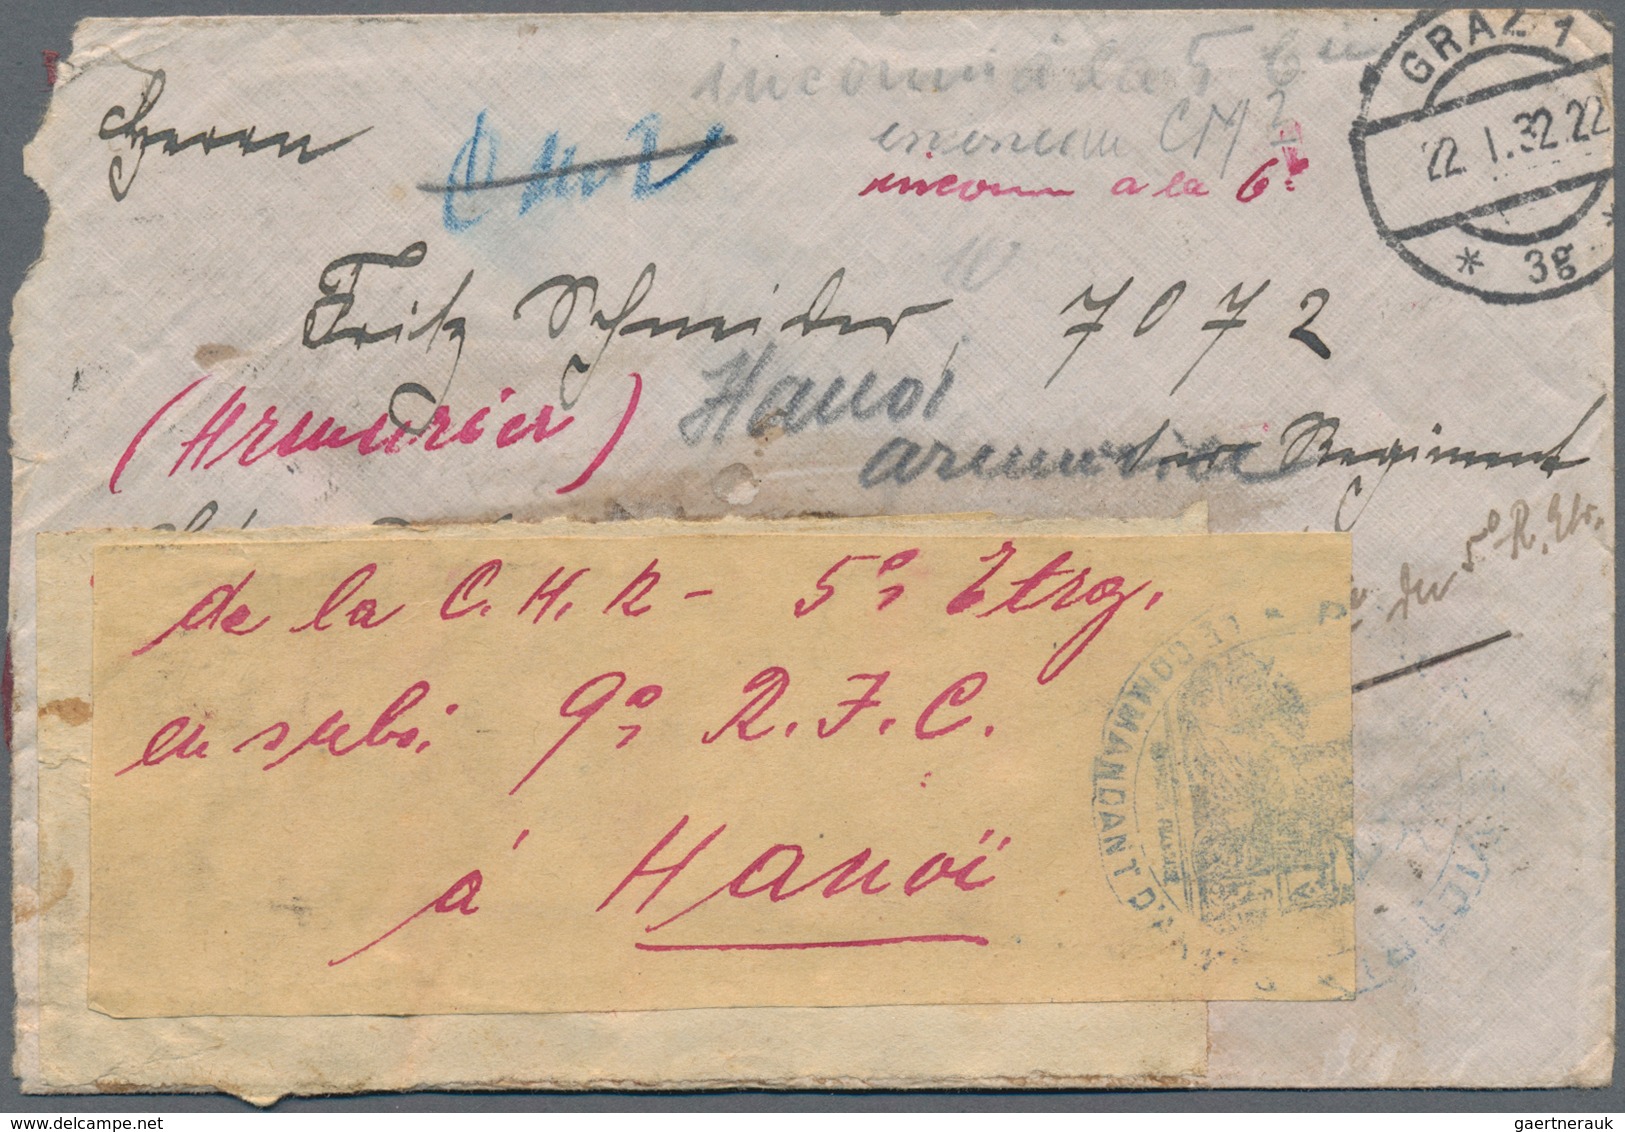 inconnu à la 5
GRAZ 1
22. I. 32. 22
* 3g *
Herrn
CM2
inconnu à la 6e
Fritz Schneider, 7072
(Armurier)
Hanoi
armurier
Regiment
du 5e R. Etr.
de la C. H. R - 5e Etrg.
en subs. 9e R. I. C.
à Hanoï
LE COMMANDANT D'A
delcampe.net
gaertnerauk